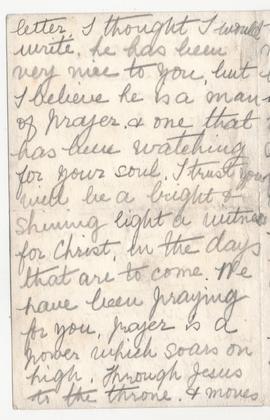 letter, I thought I would
write. he has been
very nice to you, but
I believe he is a man
of prayer. & one that
has been watching
for your soul. I trust you
will be a bright &
shining light a witness
for Christ, in the days
that are to come. We
have been praying
for you, prayer is a
power which soars on
high. Through Jesus
to the throne. & moves